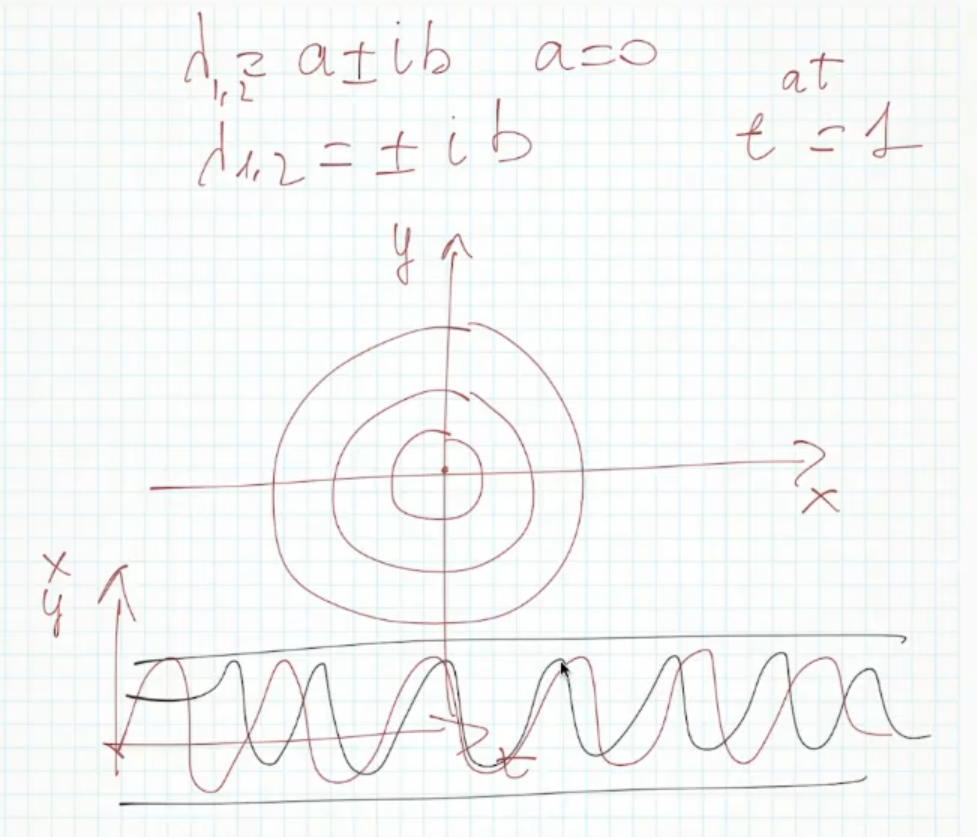 λ1,2 = a ± ib a=0
at
λ1,2 = ± ib t = 1
y
x
x
y
t